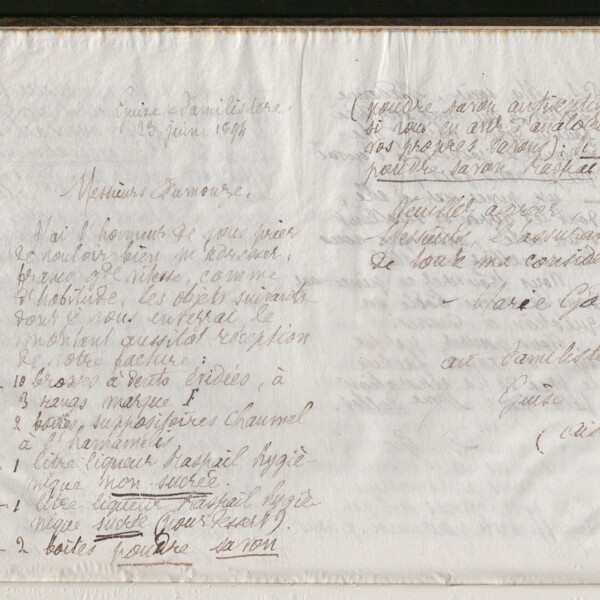 Guise Familistère
23 juin 1894
Messieurs Dumoure.
J'ai l'honneur de vous prier
de vouloir bien m'adresser,
franco gde vitesse, comme
d'habitude, les objets suivants
dont je vous enverrai le
montant aussitôt réception
de votre facture :
10 brosses à dents évidées, à
3 rangs marque F
2 boîtes suppositoires Chaumel
à l'hamamelis.
1 litre liqueur Raspail hygié-
nique non sucrée.
1 litre liqueur Raspail hygié-
nique sucrée (pour dessert).
2 boîtes poudre savon
(poudre savon antisepti
si vous en avez d'analo
vos propres savons) :
poudre savon Raspail
Veuillez agréer
Messieurs l'assuran
de toute ma considé
Marie Go
au Familistè
Guise
(Ai